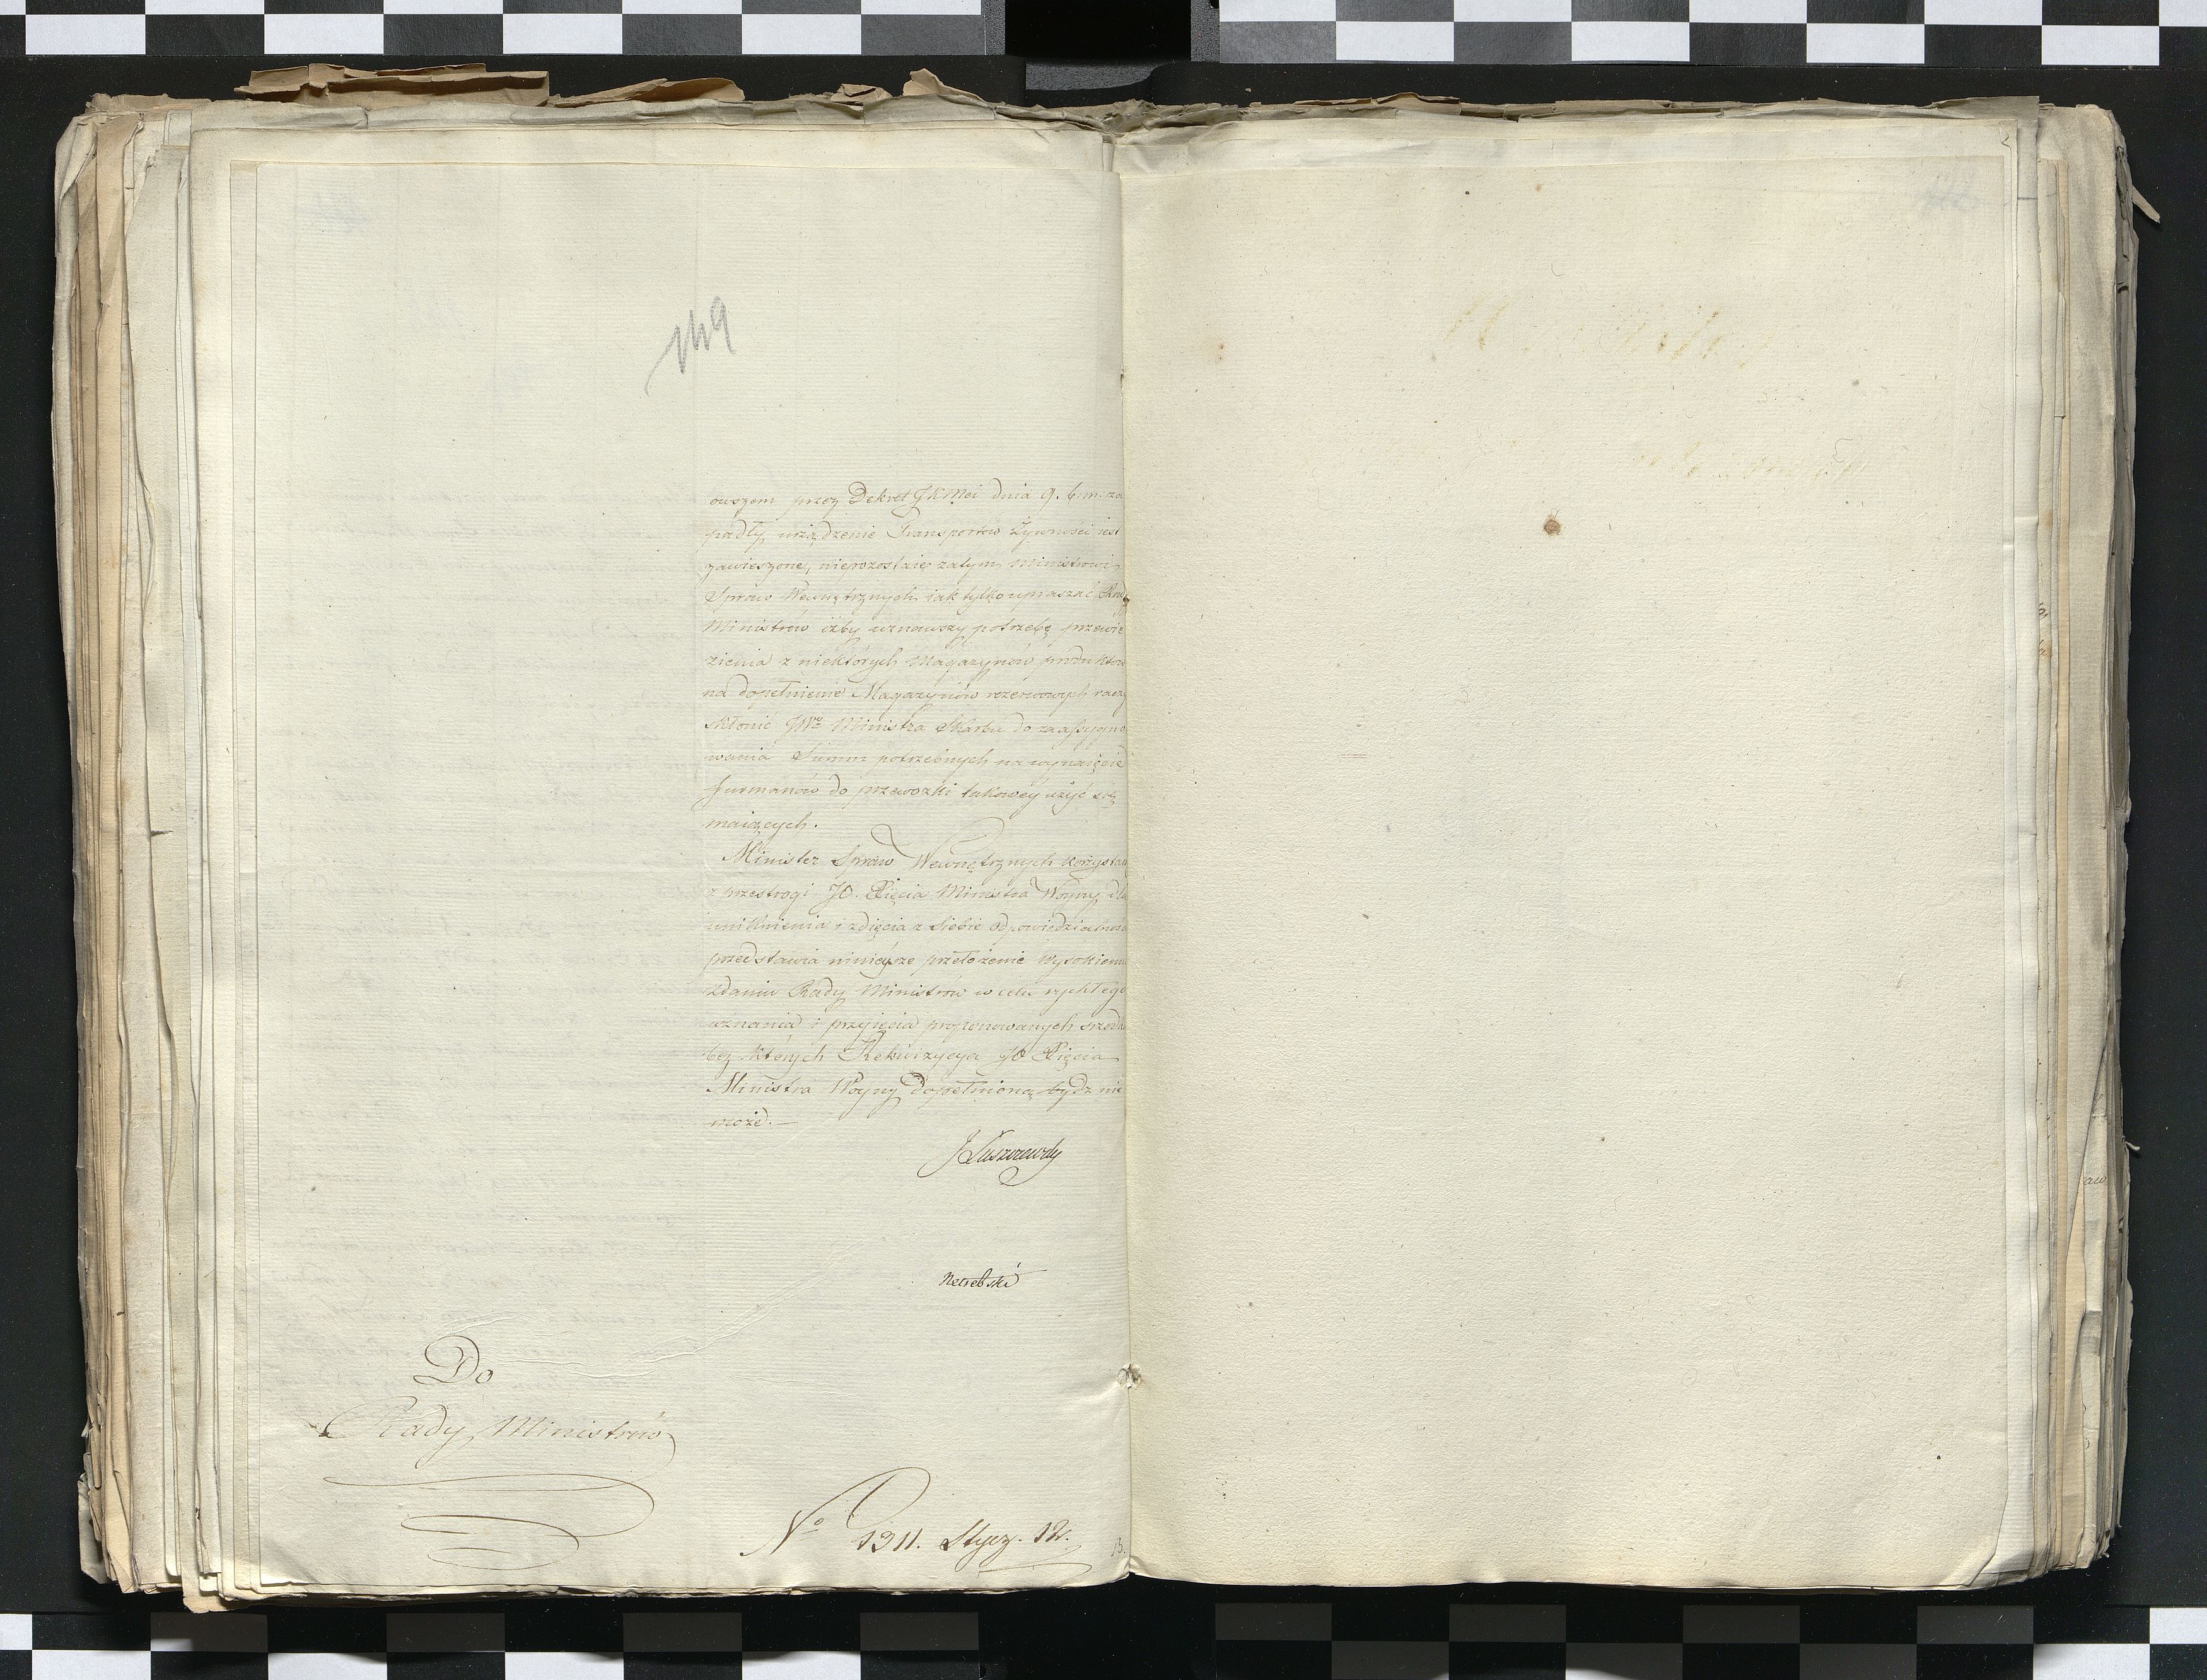 149
ouszem przez Dekret JKMci dnia 9. b. m. za
padły, urządzenie Transportow Żywności iest
zawieszone, niepozostaie zatym Ministrowi
Spraw Wewnętrznych iak tylko upraszać Rady
Ministrow iżby uznawszy potrzebę przewie
zienia z niektórych Magazynów produktow
na dopełnienie Magazynów rezerwowych raczy
skłonić JWgo Ministra Skarbu do zaassygno
wania Summ potrzebnych na wynaięcie
furmanów do przewozki takowey użyć się
maiących.
Minister Spraw Wewnętrznych korzystaiąc
z przestrogi JO. Xięcia Ministra Woyny, dla
uniknienia i zdięcia z siebie odpowiedzialności
przedstawia ninieysze przełożenie Wysokiemu
zdaniu Rady Ministrów w celu rychłego
uznania i przyięcia proponowanych srzodków
bez których Rekwizycya JO Xięcia
Ministra Woyny dopełnioną bydz nie
może.—
J Łuszczewsky
Netrebski
Do
Rady Ministrów
No 1311. Stycz. 12.